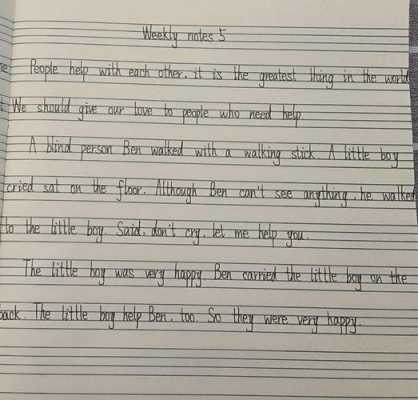 Weekly notes 5
People help with each other. it is the greatest thing in the world
We should give our love to people who need help
A blind person Ben walked with a walking stick A little boy
cried sat on the floor. Although Ben can't see anything. he walked
to the little boy Said. don't cry. let me help you.
The little boy was very happy Ben carried the little boy on the
back. The little boy help Ben. too. So they were very happy.